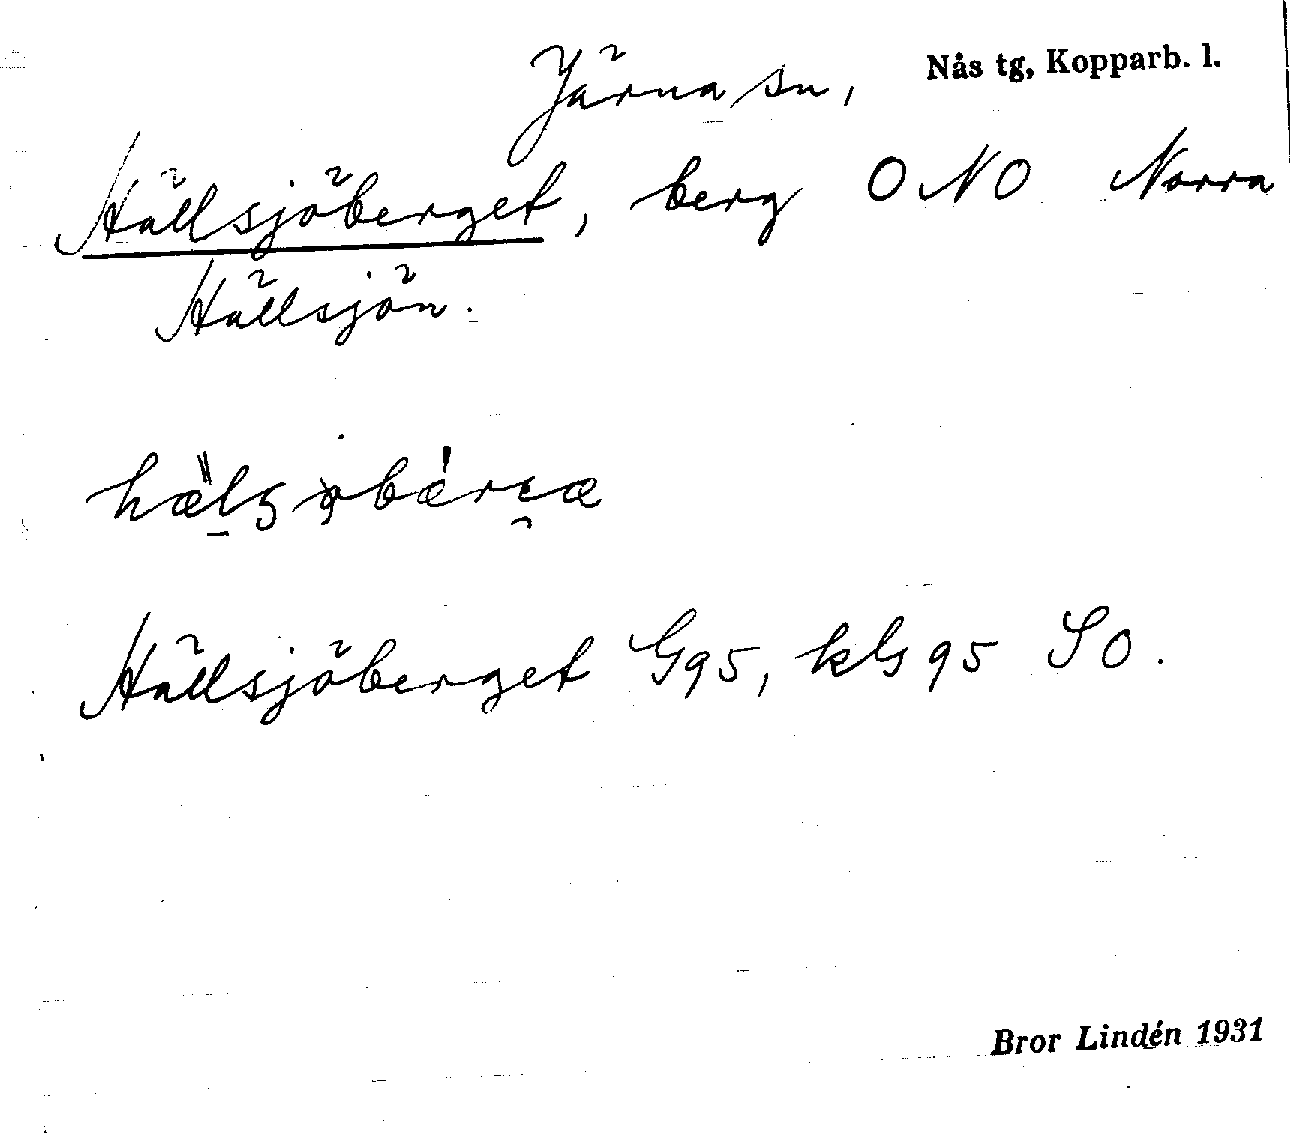 Järna sn, Nås tg, Kopparb. l.
Hällsjöberget, berg ONO Norra
Hällsjön.
Hällsjöberget G95, kG95 SO.
Bror Lindén 1931